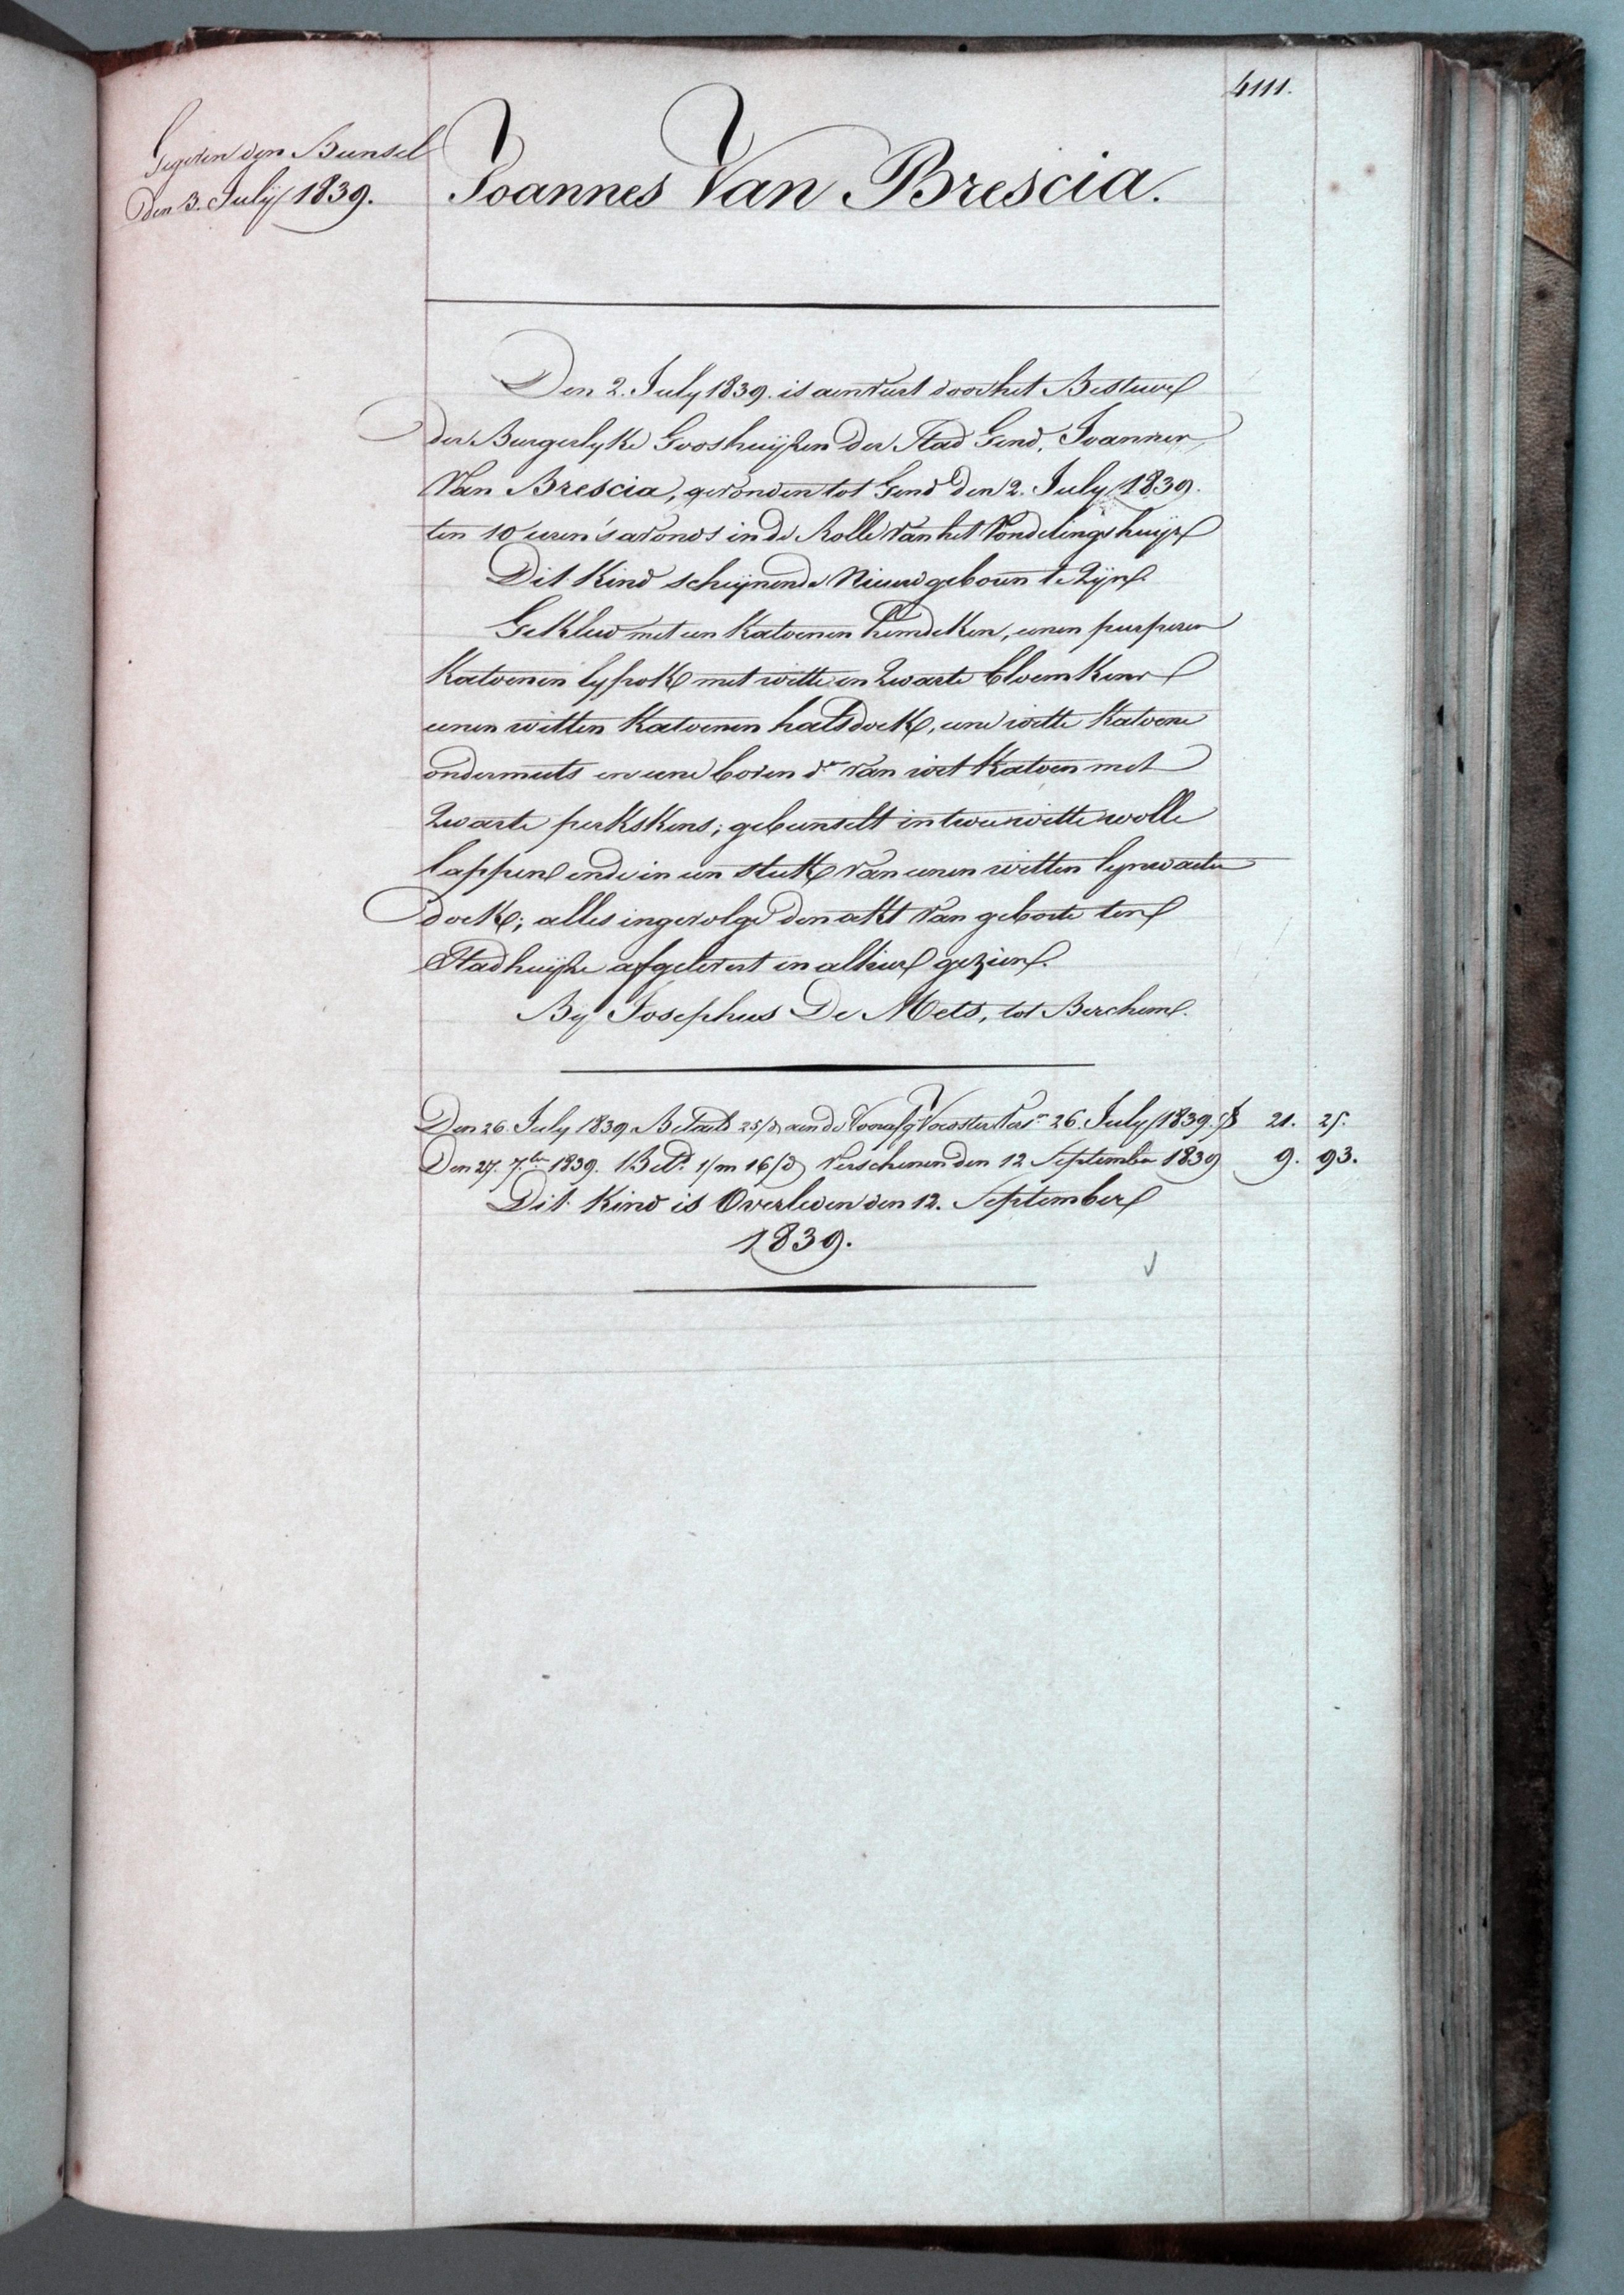 4111.
Gegeven den Bunsel
den 3. July 1839.
Joannes Van Brescia.
Den 2. July 1839. is aenveirt door het Bestuur
der Burgerlyke Godshuyzen der Stad Gend, Joannes
Van Brescia, gevonden tot Gend den 2. July 1839.
ten 10 uren 's avonds in de Rolle van het Vondelingshuys
Dit Kind schynende Nieuwgeboren te Zyn.
Gekleed met een Katoenen hemdeken, eenen purperen
Katoenen lyfrok met witte en Zwarte bloemkens
eenen witten Katoenen halsdoek, eene witte Katoene
ondermuts en eene boven de van wit Katoen met
Zwarte perkskens; gebunselt in twee witte wolle
lappen ende in een stuk van eenen witten lynwaeten
doek; alles ingevolge den akt van geboorte ten
Stadhuyze afgelevert en alhier gezien.
By Josephus De Mets, tot Berchem.
Den 26. July 1839. Betaeld 25/d aen de Voorafge Voedster Verse 26. July 1839. 21. 25.
Den 27. 7.ber 1839. Betd. 1/m 16/d Verschenen den 12 September 1839 9. 93.
Dit Kind is Overleden den 12. September
1839.